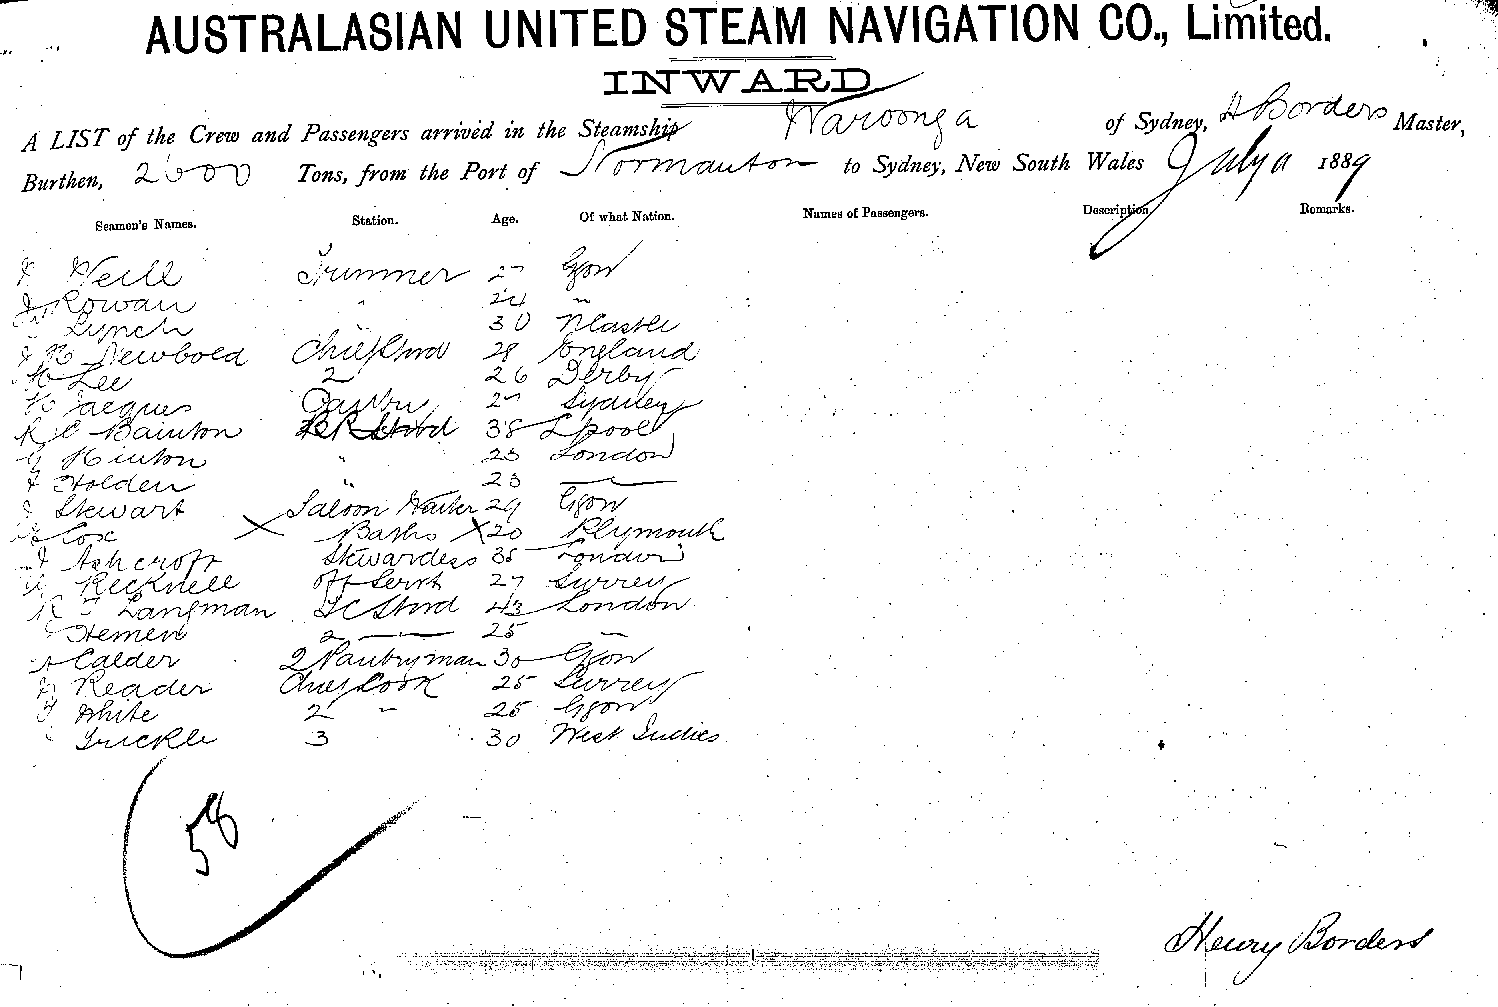 AUSTRALASIAN UNITED STEAM NAVIGATION CO., Limited.
INWARD
A LIST of the Crew and Passengers arrived in the Steamship Waroonga of Sydney, H Borders Master,
Burthen, 2500 Tons, from the Port of Normanton to Sydney, New South Wales July 1889
Seamen's Names. Station. Age. Of what Nation. Names of Passengers. Description Remarks.
Weill Trimmer 27 Ggow
Rowan " 24 "
Lynch " 30 NCastle
Newbold Chief Stwd 28 England
Lee 2 26 Derby
Jacques Pantry Sydney
R C Bainton Stwd 38 Lpool
Hinton " 23 London
Holden " 23
Stewart Saloon Waiter 29 Ggow
Cox X Baths X 20 Plymouth
Ashcroft Stewardess 35 London
Recknell Off Servt 27 Surrey
Langman FC Stwd 43 London
Hemen 2 25
Calder 2 Pantryman 30 Ggow
Reader Chief Cook 25 Surrey
White 2 " 25 Ggow
Trickle 3 30 West Indies
58
Henry Borders